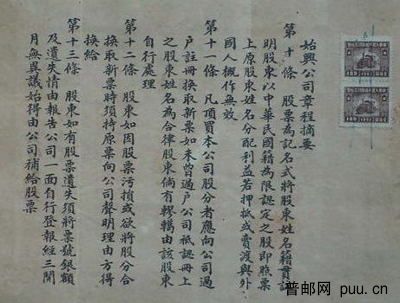 始興公司章程摘要
第十條 股票為記名式將股東姓名籍貫註
明股東以中華民國籍為限認定之股即照票
上原股東姓名分配利益若押抵或賣渡與外
國人概作無效
第十一條 凡頂買本公司股分者應向公司過
戶註冊換取新票如未曾過戶公司祇認冊上
之股東姓名為合律股東倘有轇轕由該股東
自行處理
第十二條 股東如因股票污損或欲將股分合
換取新票時須持原票向公司聲明理由方得
換給
第十三條 股東如有股票遺失須將票號銀額
及遺失情由報告公司一面自行登報經三閱
月無異議始得由公司補給股票
普邮网 puu.cn